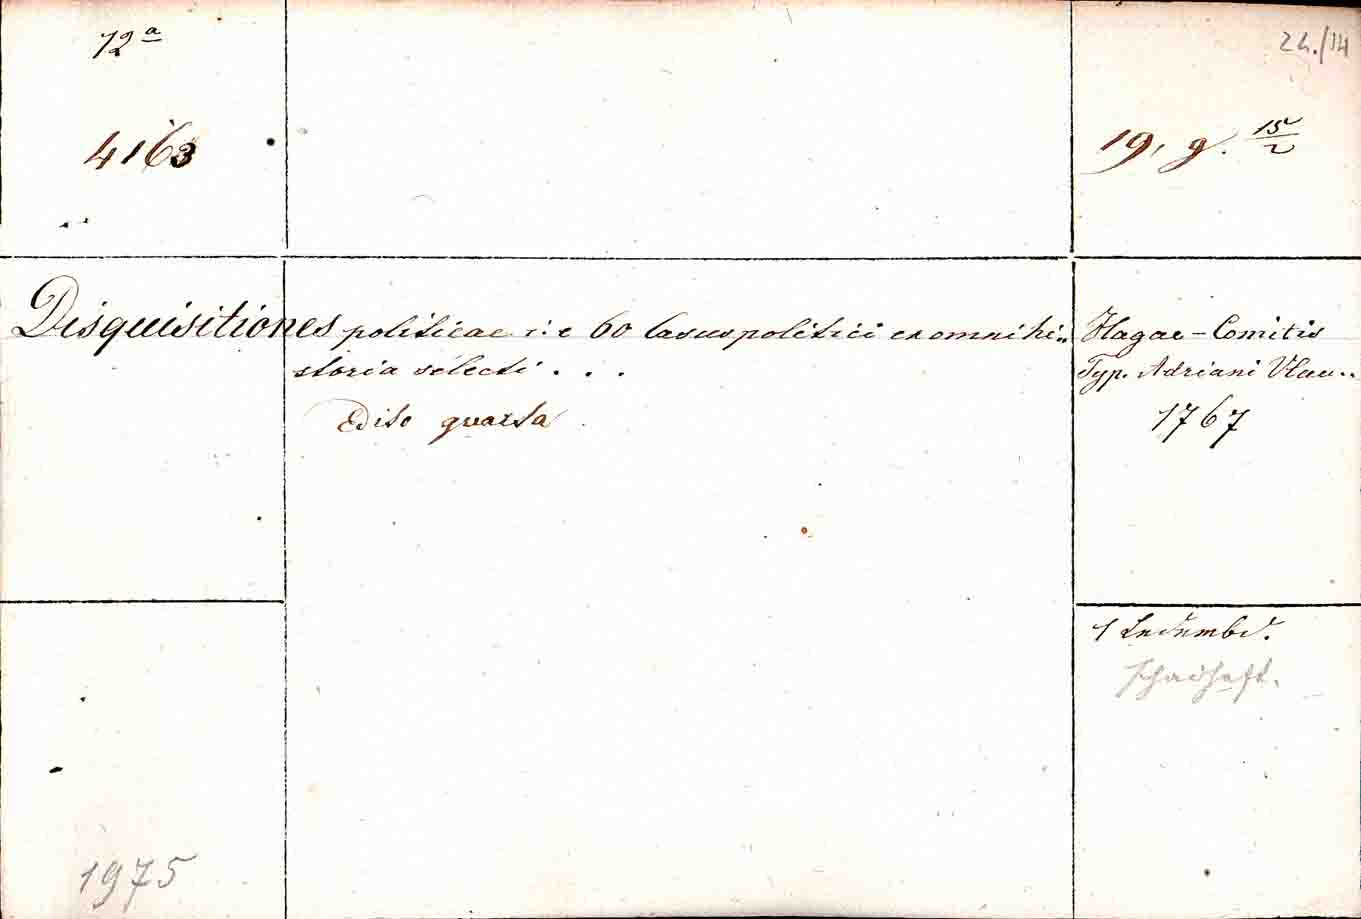 12a
24./14
4163
19, g. 15/2
Disquisitiones politicae i: e 60 Casus politici ex omni hi„
storia selecti . . .
Edito quarta
Hagae - Comitis
Typ. Adriani Vlac..
1767
1 Ledernbd.
schadhaft.
1975